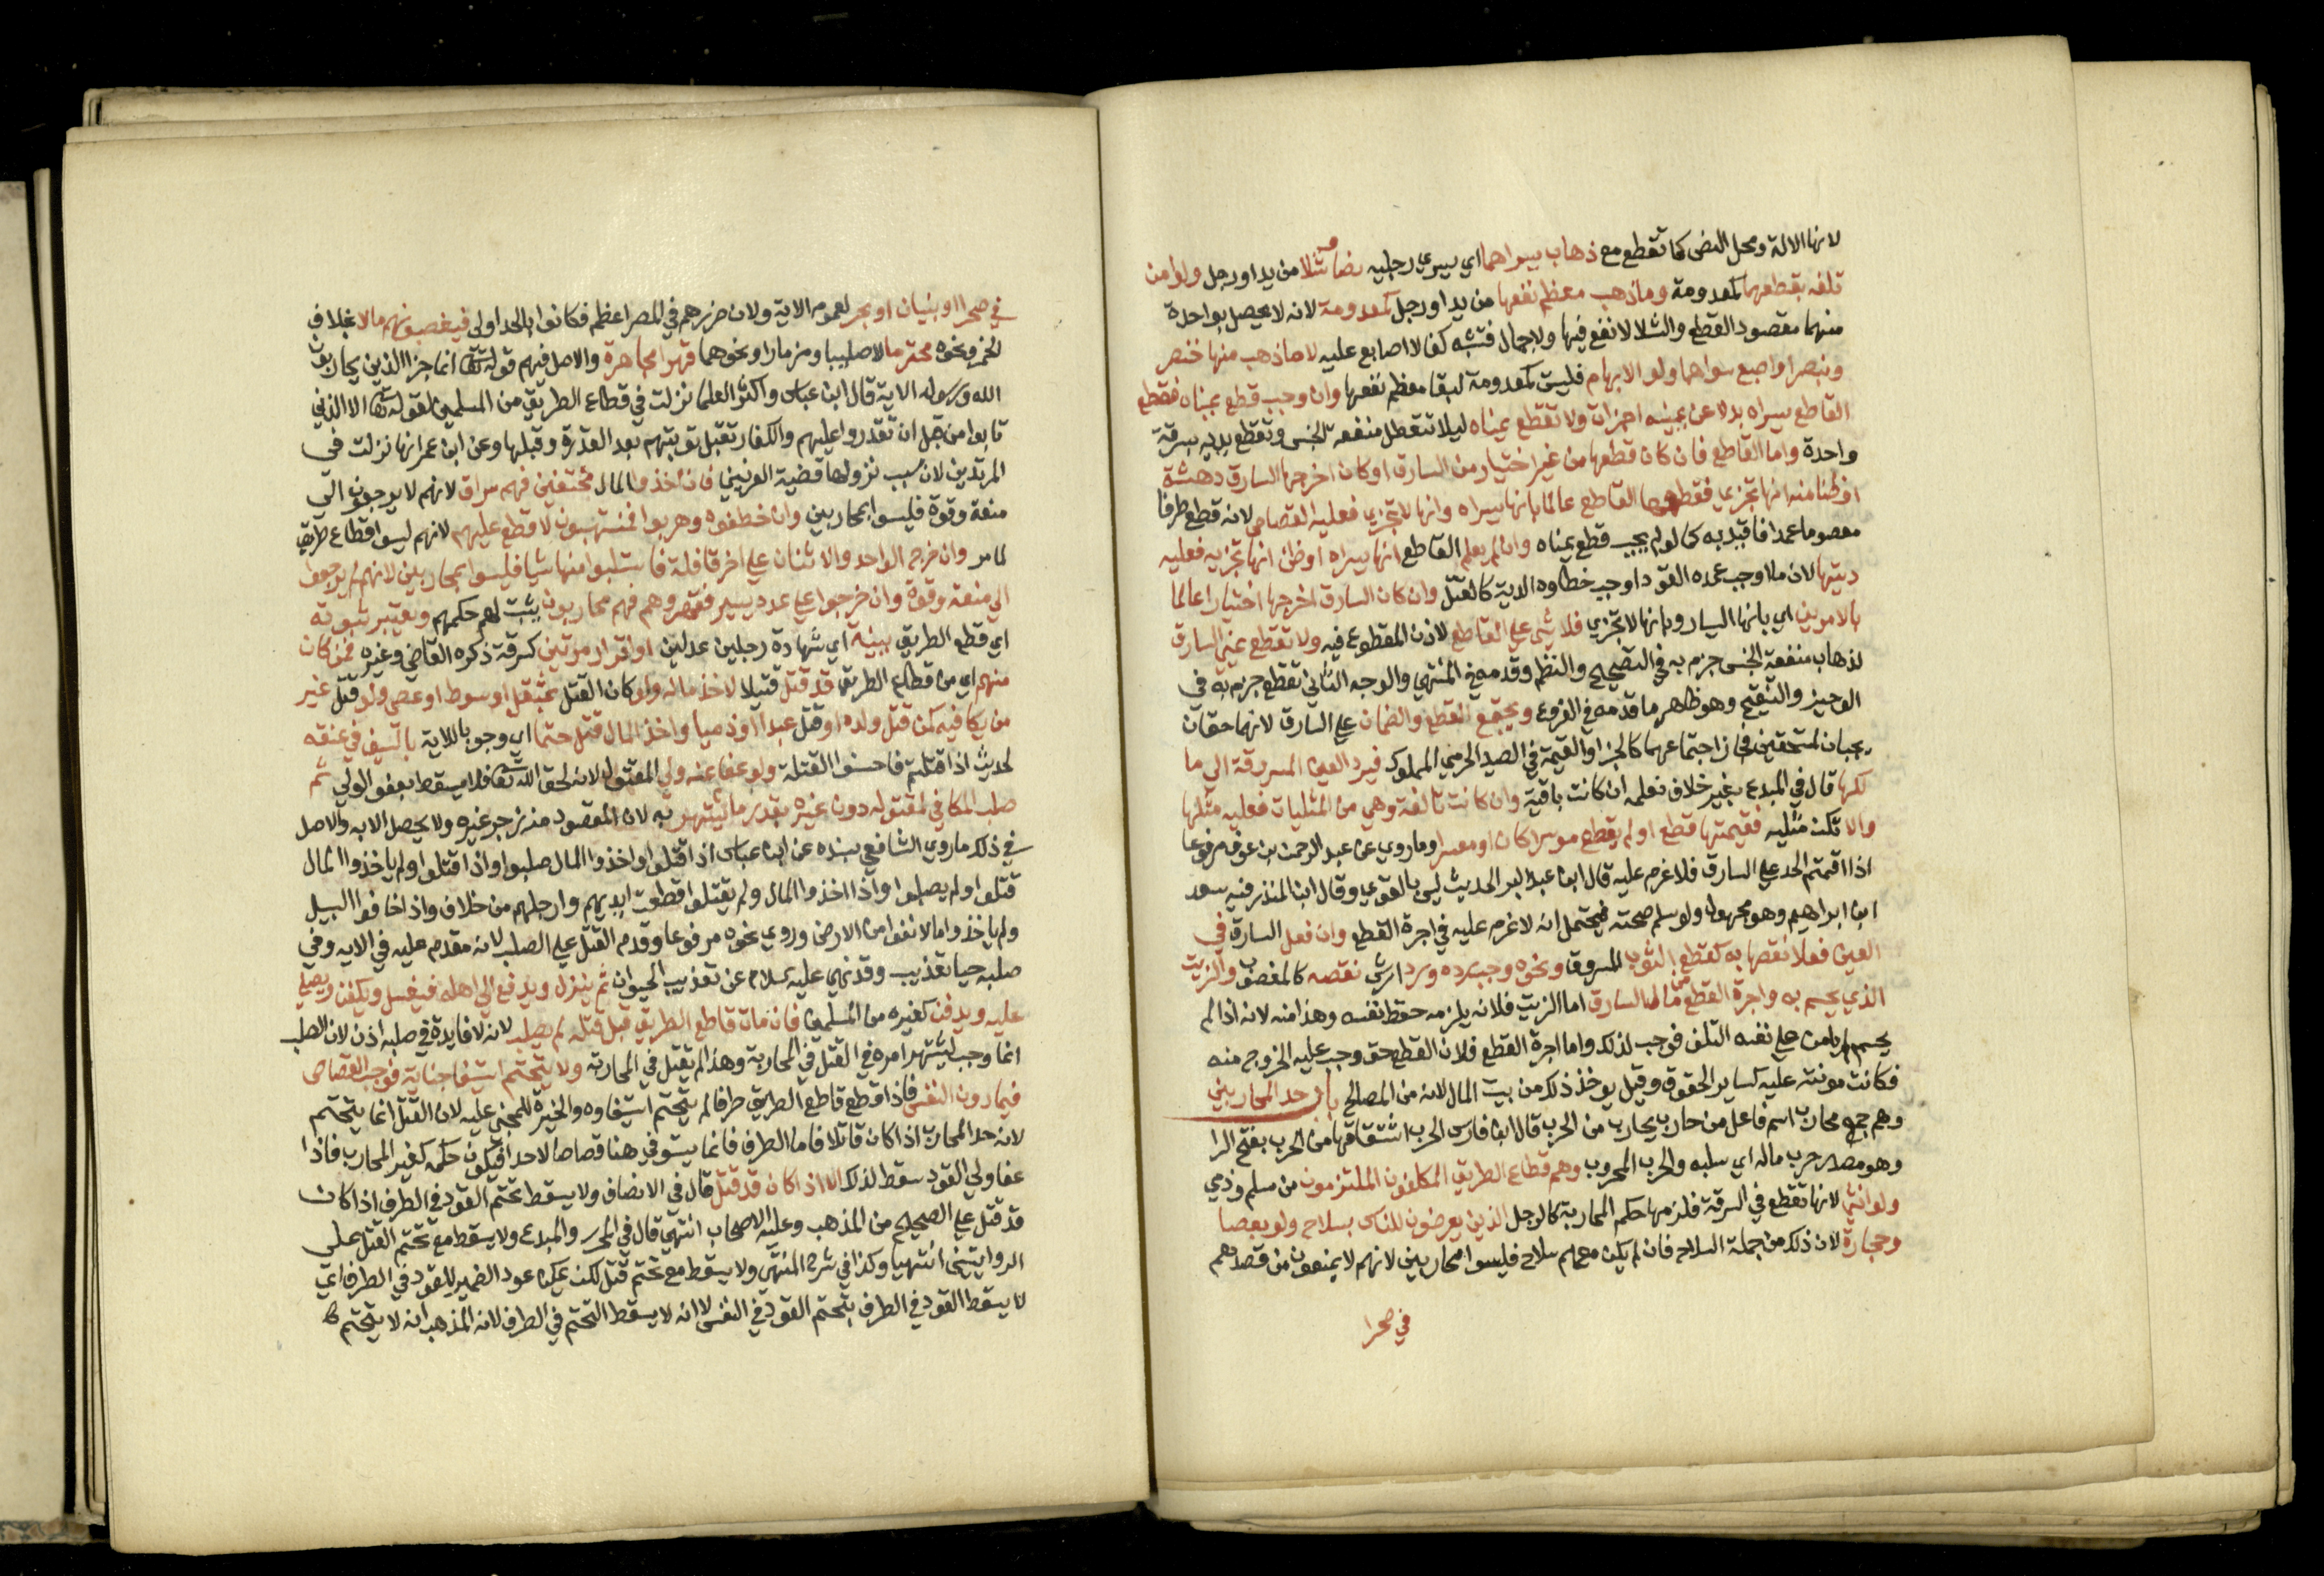 لانها الالة ومحل النص كما تقطع مع ذهاب يسراهما اي يسري رجليه وما شلا من يد اورجل ولو امن
تلفه بقطعهما كمعدومة وما ذهب معظم نفعها من يد اورجل كمعدومة لانه لا يحصل بواحدة
منهما مقصود القطع والشلا لا نفع فيها ولا جمال فتشبه كفا لا اصابع عليه لا ما ذهب منها خنصر
وبنصر او اصبع سواهما ولو الابهام فليست كمعدومة لبقا معظم نفعها وان وجب قطع يمناه فقطع
القاطع يسراه بدلا عن يمينه اجزات ولا تقطع يمناه ليلا تتعطل منفعة الجنس وتقطع يديه بسرقة
واحدة واما القاطع فان كان قطعها من غير اختيار من السارق او كان اخرجها السارق دهشة
او ظنا منه انها تجزي فقطعها القاطع عالما بانها يسراه وانها لا تجزي فعليه القصاص لانه قطع طرفا
معصوما عمدا فاقيد به كما لو لم يجب قطع يمناه وان لم يعلم القاطع انها يسراه او ظن انها تجزيه فعليه
ديتها لان ما اوجب عمده القود اوجب خطاوه الدية كالقتل وان كان السارق اخرجها اختيارا عالما
بالامرين اي بانها اليسار وبانها لا تجزي فلا شي علي القاطع لاذن المقطوع فيه ولا تقطع يمني السارق
لذهاب منفعة الجنس جزم به في التصحيح والنظم وقدمه في المنتهي والوجه الثاني تقطع جزم به في
الوجيز والتنقيح وهو ظاهر ما قدمه في الفروع ويجتمع القطع والضمان علي السارق لانهما حقان
يجبان لمستحقين فجاز اجتماعهما كالجزا والقيمة في الصيد الحرمي المملوك فيرد العين المسروقة الي ما
لكها قال في المبدع بغير خلاف نعلمه ان كانت باقية وان كانت تالفة وهي من المثليات فعليه مثلها
والا تكن مثليه فقيمتها قطع او لم يقطع موسرا كان او معسرا وماروي عن عبد الرحمن بن عوف مرفوعا
اذا اقمتم الحد علي السارق فلا غرم عليه قال ابن عبد البر الحديث ليس بالقوي وقال ابن المنذر فيه سعد
ابن ابراهيم وهو مجهول ولو سلم صحته فيحتمل انه لا غرم عليه في اجرة القطع وان فعل السارق في
العين فعلا نقصها به كقطع الثوب المسروق ونحوه وجب رده ورد ارش نقصه كالمغصوب والزيت
الذي يحسم به واجرة القطع من مال السارق اما الزيت فلانه يلزمه حفظ نفسه وهذا منه لانه اذا لم
يحسم لم يامن علي نفسه التلف فوجب لذلك واما اجرة القطع فلان القطع حق وجب عليه الخروج منه
فكانت مونته عليه كساير الحقوق وقيل يوخذ ذلك من بيت المال لانه من المصالح باب حد المحاربين
وهم جمع محارب اسم فاعل من حارب يحارب من الحرب قال ابن فارس الحرب اشتقاقها من الحرب بفتح الرا
وهو مصدر حرب ماله اي سلبه والحرب المحروب وهم قطاع الطريق المكلفون الملتزمون من مسلم وذمي
ولو انثي لانها تقطع في السرقة فلزمها حكم المحاربة كالرجل الذين يعرضون للناس بسلاح ولو بعصا
وحجارة لان ذلك من جملة السلاح فان لم يكن معهم سلاح فليسوا محاربين لانهم لا يمنعون من قصدهم
في صحرا
في صحرا او بنيان او بحر لعموم الاية ولان ضررهم في المصر اعظم فكانوا بالحد اولي فيغصبونهم مالا بخلاف
الخمر ونحوه محترما لا صليبا ومزمارا ونحوهما قهرا مجاهرة والاصل فيهم قوله تعالى انما جزا الذين يحاربون
الله ورسوله الاية قال ابن عباس واكثر العلما نزلت في قطاع الطريق من المسلمين لقوله تعالى الا الذين
تابوا من قبل ان تقدروا عليهم والكفار تقبل توبتهم بعد القدرة وقبلها وعن ابن عمر انها نزلت في
المرتدين لان سبب نزولها قضية العرنيين فان اخذوا المال مختفين فهم سراق لانهم لا يرجعون الي
منعة وقوة فليسوا بمحاربين وان خطفوه وهربوا فمنتهبون لا قطع عليهم لانهم ليسوا قطاع طريق
لما مر وان خرج الواحد والاثنان علي اخر قافلة فاستلبوا منها شيا فليسوا بمحاربين لانهم لم يرجعوا
الي منعة وقوة وان خرجوا علي عدد يسير فقهروهم فهم محاربون يثبت لهم حكمهم ويعتبر ثبوته
اي قطع الطريق ببينة اي شهادة رجلين عدلين او اقرار مرتين كسرقة ذكره القاضي وغيره فمن كان
منهم اي من قطاع الطريق قد قتل قتيلا لاخذ ماله ولو كان القتل بمثقل او سوط او عصي ولو قتل غير
من يكافيه كمن قتل ولده او قتل عبدا او ذميا واخذ المال قتل حتما اي وجوبا للاية بالسيف في عنقه
لحديث اذا قتلتم فاحسنوا القتلة ولو عفا عنه ولي المقتول لانه لحق الله تعالى فلا يسقط بعفو الولي ثم
صلب المكافي لمقتوله دون غيره بقدر ما يشتهر به لان المقصود منه زجر غيره ولا يحصل الا به والاصل
في ذلك ماروي الشافعي بسنده عن ابن عباس اذا قتلوا واخذوا المال صلبوا واذا قتلوا ولم ياخذوا المال
قتلوا ولم يصلبوا واذا اخذوا المال ولم يقتلوا قطعت ايديهم وارجلهم من خلاف واذا اخافوا السبيل
ولم ياخذوا مالا نفوا من الارض وروي نحوه مرفوعا وقدم القتل علي الصلب لانه مقدم عليه في الاية وفي
صلبه حيا تعذيب وقد نهي عليه السلام عن تعذيب الحيوان ثم ينزل ويدفع الي اهله فيغسل ويكفن ويصلي
عليه ويدفن كغيره من المسلمين فان مات قاطع الطريق قبل قتله لم يصلب لانه لا فايدة في صلبه اذن لان الصلب
انما وجب ليشتهر امره في القتل في المحاربة وهذا لم يقتل في المحاربة ولا يتحتم استيفا جناية توجب القصاص
فيما دون النفس فاذا قطع قاطع الطريق طرفا لم يتحتم استيفاوه والخيرة للمجني عليه لان القتل انما يتحتم
لانه حد المحارب اذا كان قاتلا فاما الطرف فانما يستوفي هنا قصاصا لا حدا فيكون حكمه كغير المحارب فاذا
عفا ولي القود سقط لذلك الا اذا كان قد قتل قال في الانصاف ولا يسقط تحتم القود في الطرف اذا كان
قد قتل علي الصحيح من المذهب وعليه الاصحاب انتهي قال في المحرر والمبدع ولا يسقط مع تحتم القتل علي
الروايتين انتهيا وكذا في شرح المنتهي ولا يسقط مع تحتم قتل لكن يمكن عود الضمير للقود في الطرف اي
لا يسقط القود في الطرف بتحتم القود في النفس لا انه لا يسقط التحتم في الطرف لان المذهب انه لا يتحتم كما